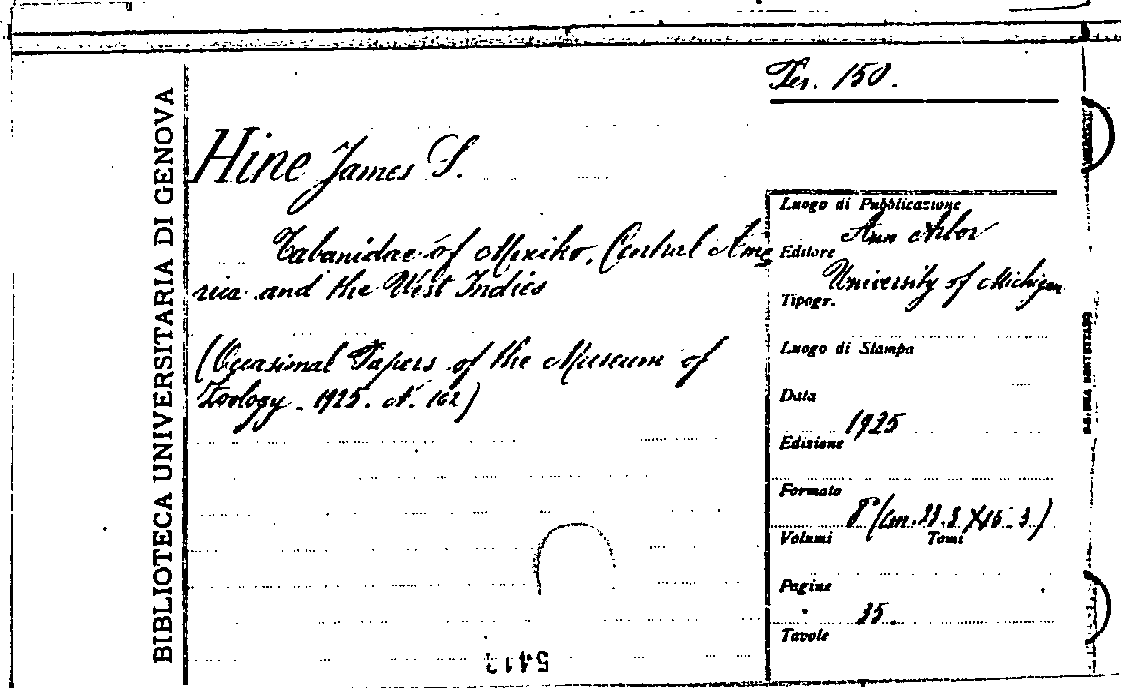 BIBLIOTECA UNIVERSITARIA DI GENOVA
Fer. 150.
Hine James S.
Tabanidae of Mexiko, Central Ame
rica and the West Indies
(Occasional Papers of the Museum of
Zoology. 1925. N. 162)
Luogo di Pubblicazione
Ann Arbor
Editore
University of Michigan
Tipogr.
Luogo di Stampa
Data
1925
Edizione
Formato
8° (cm.
Volumi Tomi
Pagine
35.
Tavole